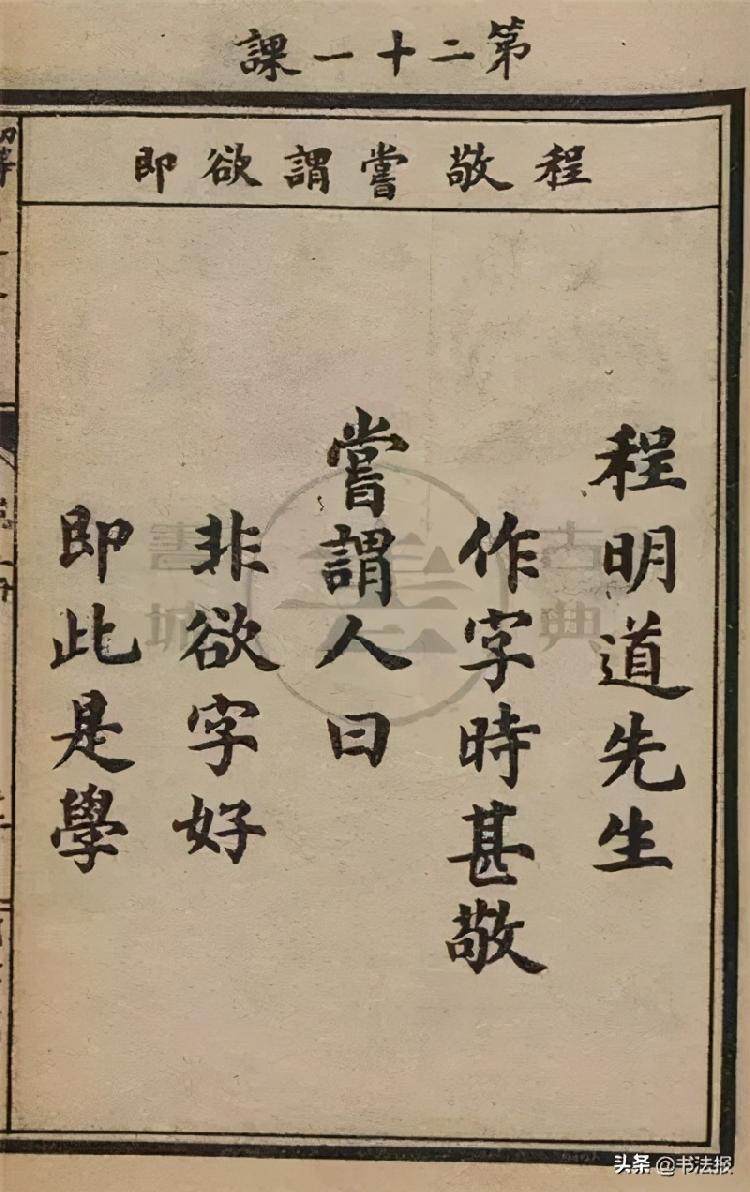 第二十一課
程敬嘗謂欲即
程明道先生
作字時甚敬
嘗謂人曰
非欲字好
即此是學
古典
書城
头条 @书法报